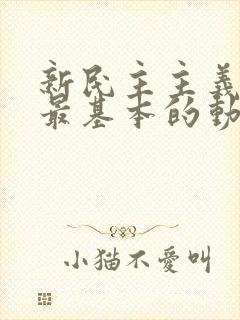 新民主主義
最基本的動
小猫不愛叫